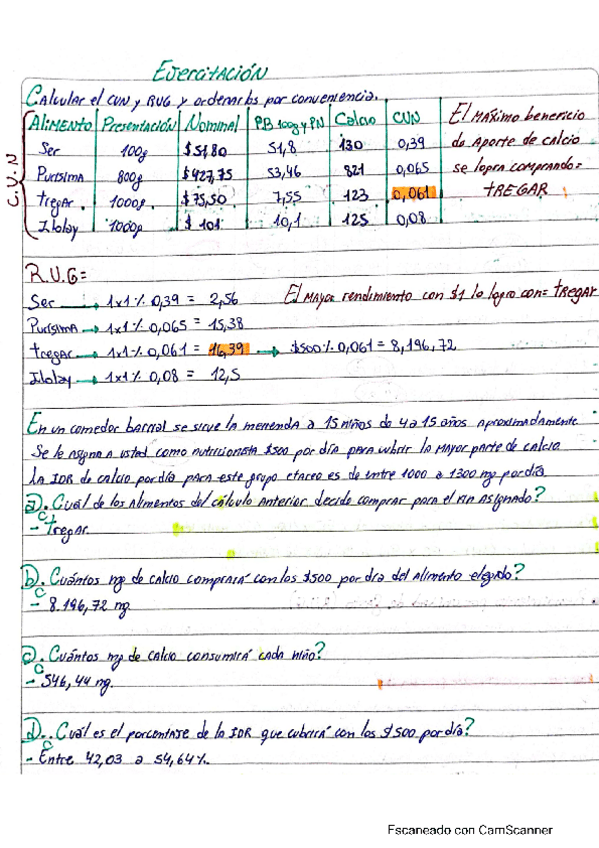 Ejercitación
Calcular el CUN y RUG y ordenarlos por conveniencia.
C.U.N
Alimento Presentación Nominal PB 100g y PN Calcio CUN
Ser 100g $51,80 51,8 130 0,39
Purísima 800g $427,75 53,46 821 0,065
tregar. 1000g. $75,50 7,55 123 0,061
Ilolay 1000g. $ 101 10,1 125 0,08
El máximo beneficio
de aporte de calcio
se logra comprando=
TREGAR
R.U.G=
Ser → 1x1% 0,39 = 2,56
El mayor rendimiento con $1 lo logro con= TREGAR
Purísima → 1x1% 0,065 = 15,38
tregar → 1x1% 0,061 = 16,39 → $500% 0,061 = 8,196,72
Ilolay → 1x1% 0,08 = 12,5
En un comedor barrial se sirve la merienda a 15 niños de 4 a 15 años aproximadamente
Se le asigna a usted como nutricionista $500 por día para cubrir la mayor parte de calcio
La IDR de calcio por día para este grupo etareo es de entre 1000 a 1300 mg por día
a). Cuál de los alimentos del cálculo anterior decide comprar para el fin asignado?
- Tregar.
b). Cuántos mg de calcio comprará con los $500 por día del alimento elegido?
- 8.196,72 mg.
c). Cuántos mg de calcio consumirá cada niño?
- 546,44 mg.
D). Cuál es el porcentaje de la IDR que cubrirá con los $500 por día?
- Entre 42,03 a 54,64%.
Escaneado con CamScanner